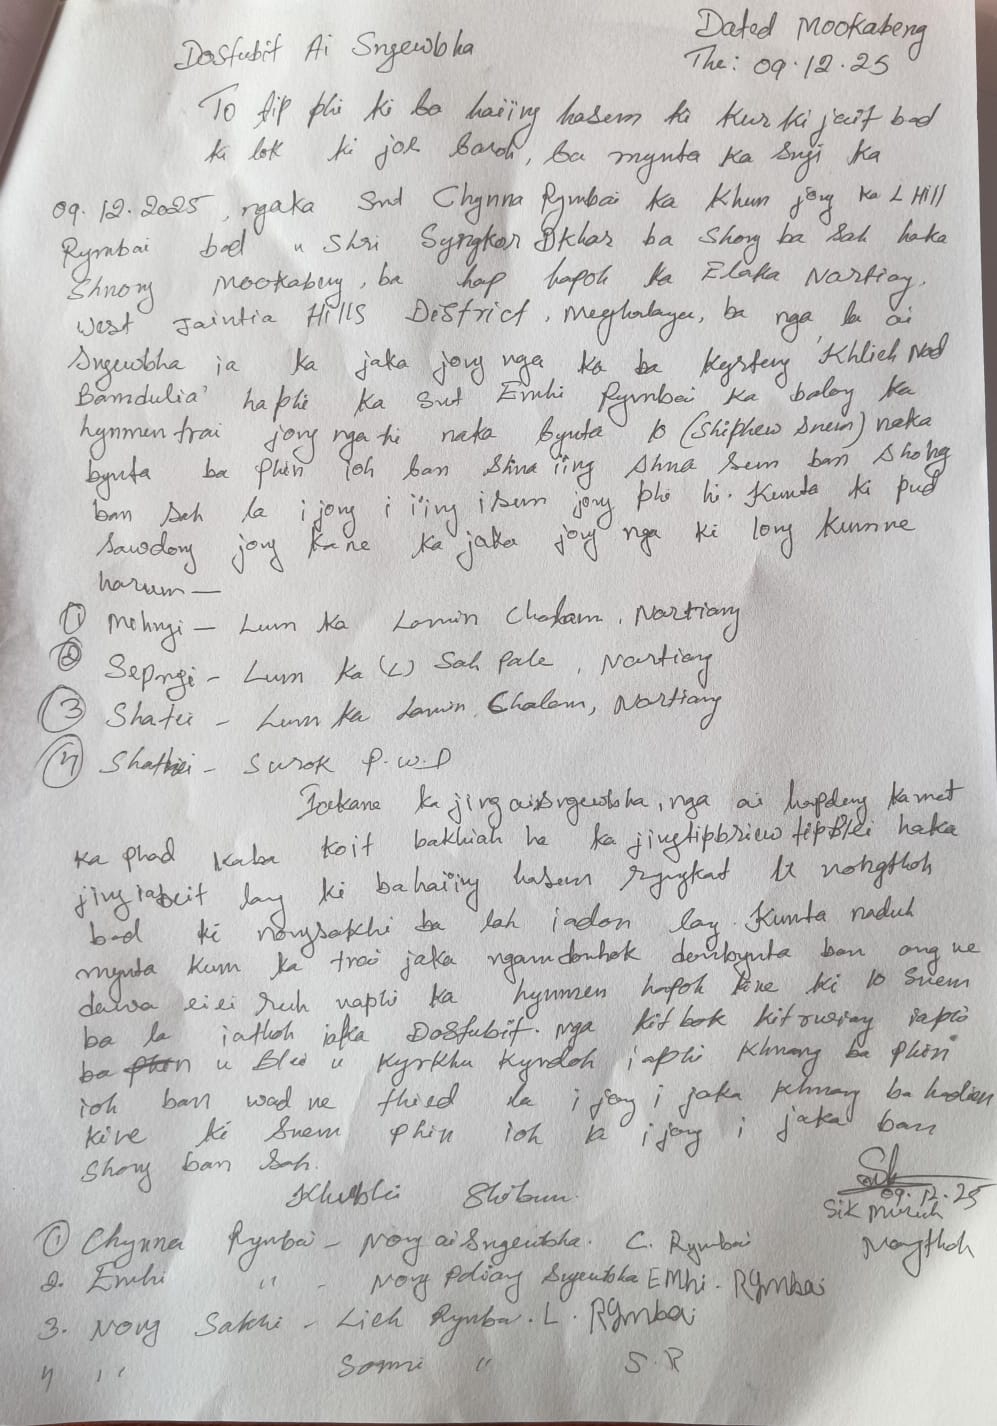 Dosfubit Ai Sngewbha
Dated Mookabeng
The: 09.12.25
To tip phi ki ba haiing hasem ki Kur ki jait bad
ki lok ki jor baroh, ba mynta ka sngi ka
09.12.2025, ngaka Smt Chynna Rymbai ka Khun jong ka L Hill
Rymbai bad u Shri Syngkor Dkhar ba Shong ba Sah haka
Shnong Mookabeng, ba hap hapoh ka Elaka Nartiang,
West Jaintia Hills District, Meghalaya, ba nga la ai
Sngewbha ia ka jaka jong nga ka ba kyrteng 'Khlieh Nod
Bamdulia' haphi ka Smt Emhi Rymbai ka balong ka
hynmen trai jong nga hi naka bynta 10 (Shiphew Snem) naka
bynta ba phin ioh ban Shna iing Shna Sem ban Shong
ban Sah la i jong i iing i sem jong phi hi. Kumta ki pud
Sawdong jong kane ka jaka jong nga ki long kumne
harum —
① Mihngi — Lum ka Lamin Chalam, Nartiang
② Sepngi - Lum ka (L) Sah Pale, Nartiang
③ Shatei - Lum ka Lamin Chalam, Nartiang
④ Shathei - Surok P.W.D
Iakane ka jingaisngewbha, nga ai hapdeng ka met
ka phad kaba koit bakhiah ha ka jingtipbriew tipblei haka
jingiabeit lang ki bahaiing hasem ryngkat u nongthoh
bad ki nongsakhi ba lah iadon lang. Kumta naduh
mynta kum ka trai jaka ngamdonhok donbynta ban ong ne
dawa eiei ruh naphi ka hynmen hapoh kine ki 10 Snem
ba la iathoh iaka Dosfubit. nga kitbok kitrwiang iaphi
ba u Blei u kyrkhu kyrdoh iaphi khnang ba phin
ioh ban wad ne thied la i jong i jaka khnang ba hadien
kine ki Snem phin ioh la i jong i jaka ban
Shong ban Sah.
Khublei Shibun.
09.12.25
Sik Murieh
Nongthoh
① Chynna Rymbai - Nong ai Sngewbha. C. Rymbai
2. Emhi " - Nong Pdiang Sngewbha EMhi. RYmbai
3. Nong Sakhi - Lieh Rymbai. L. RYmbai
4 " Sanmi " S.R